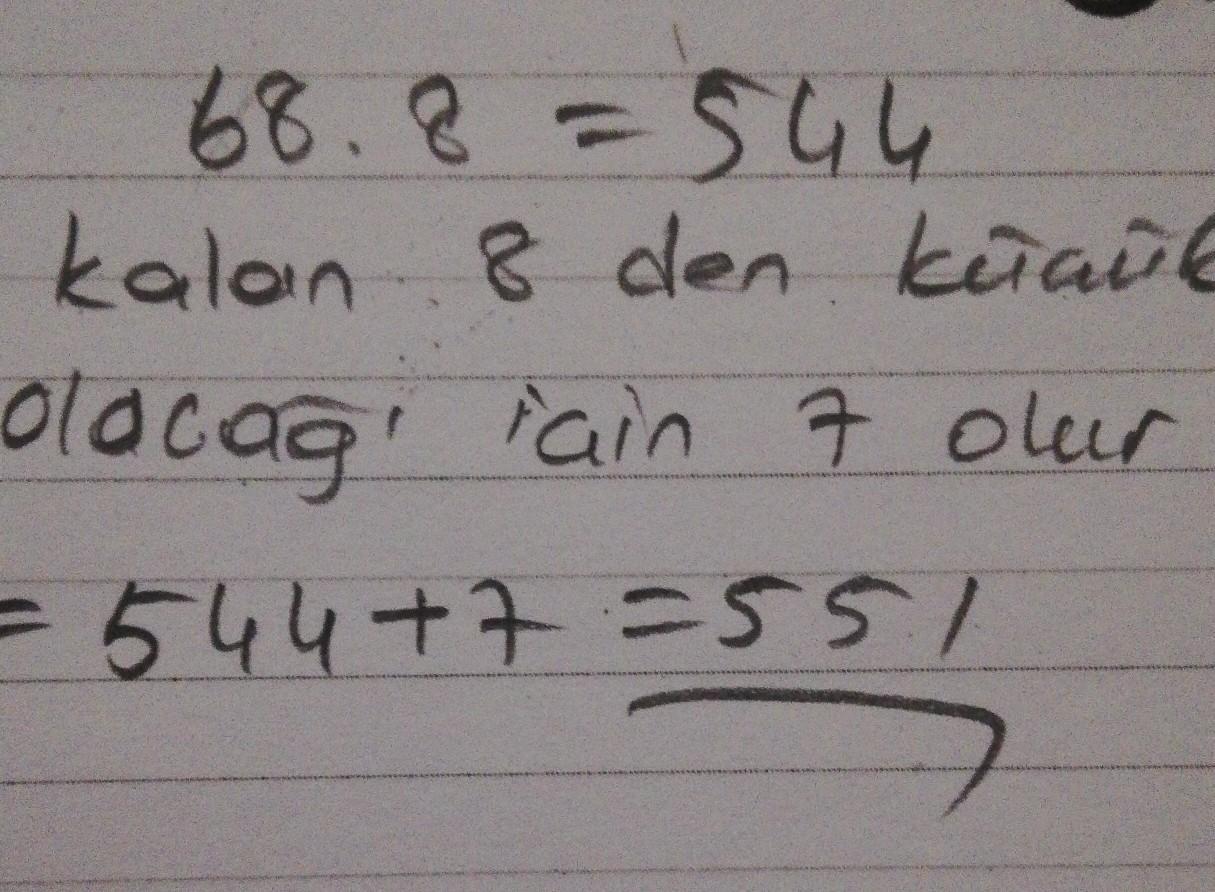 68.8 = 544
kalan 8 den küçük
olacağı için 7 olur
= 544+7 = 551